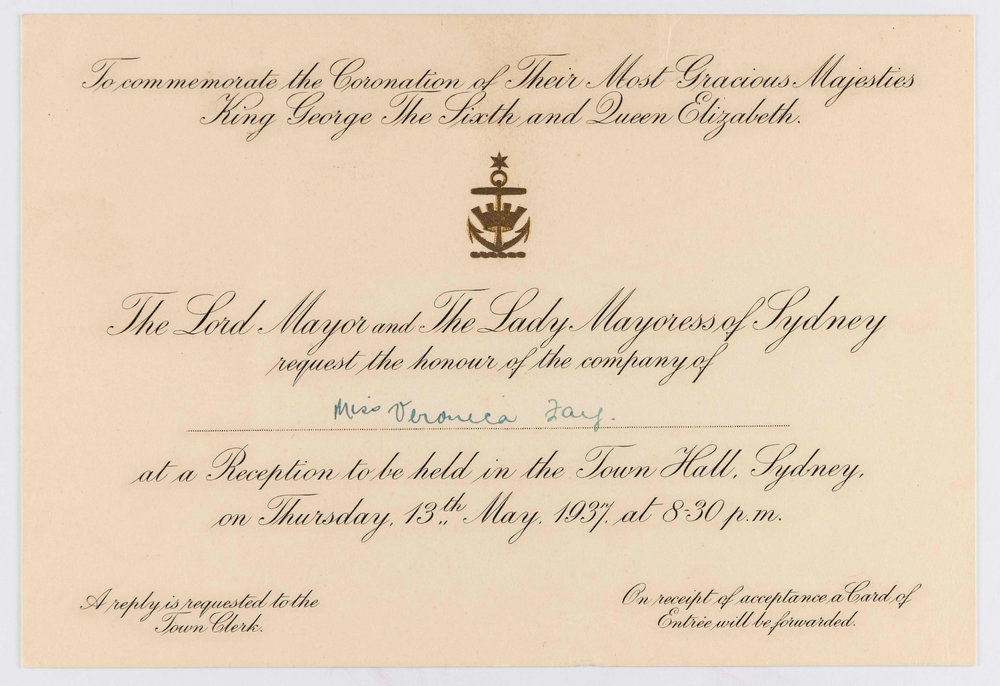 To commemorate the Coronation of Their Most Gracious Majesties
King George The Sixth and Queen Elizabeth.
The Lord Mayor and The Lady Mayoress of Sydney
request the honour of the company of
Miss Veronica Fay.
at a Reception to be held in the Town Hall, Sydney,
on Thursday, 13th May, 1937, at 8-30 p.m.
A reply is requested to the
Town Clerk.
On receipt of acceptance a Card of
Entrée will be forwarded.